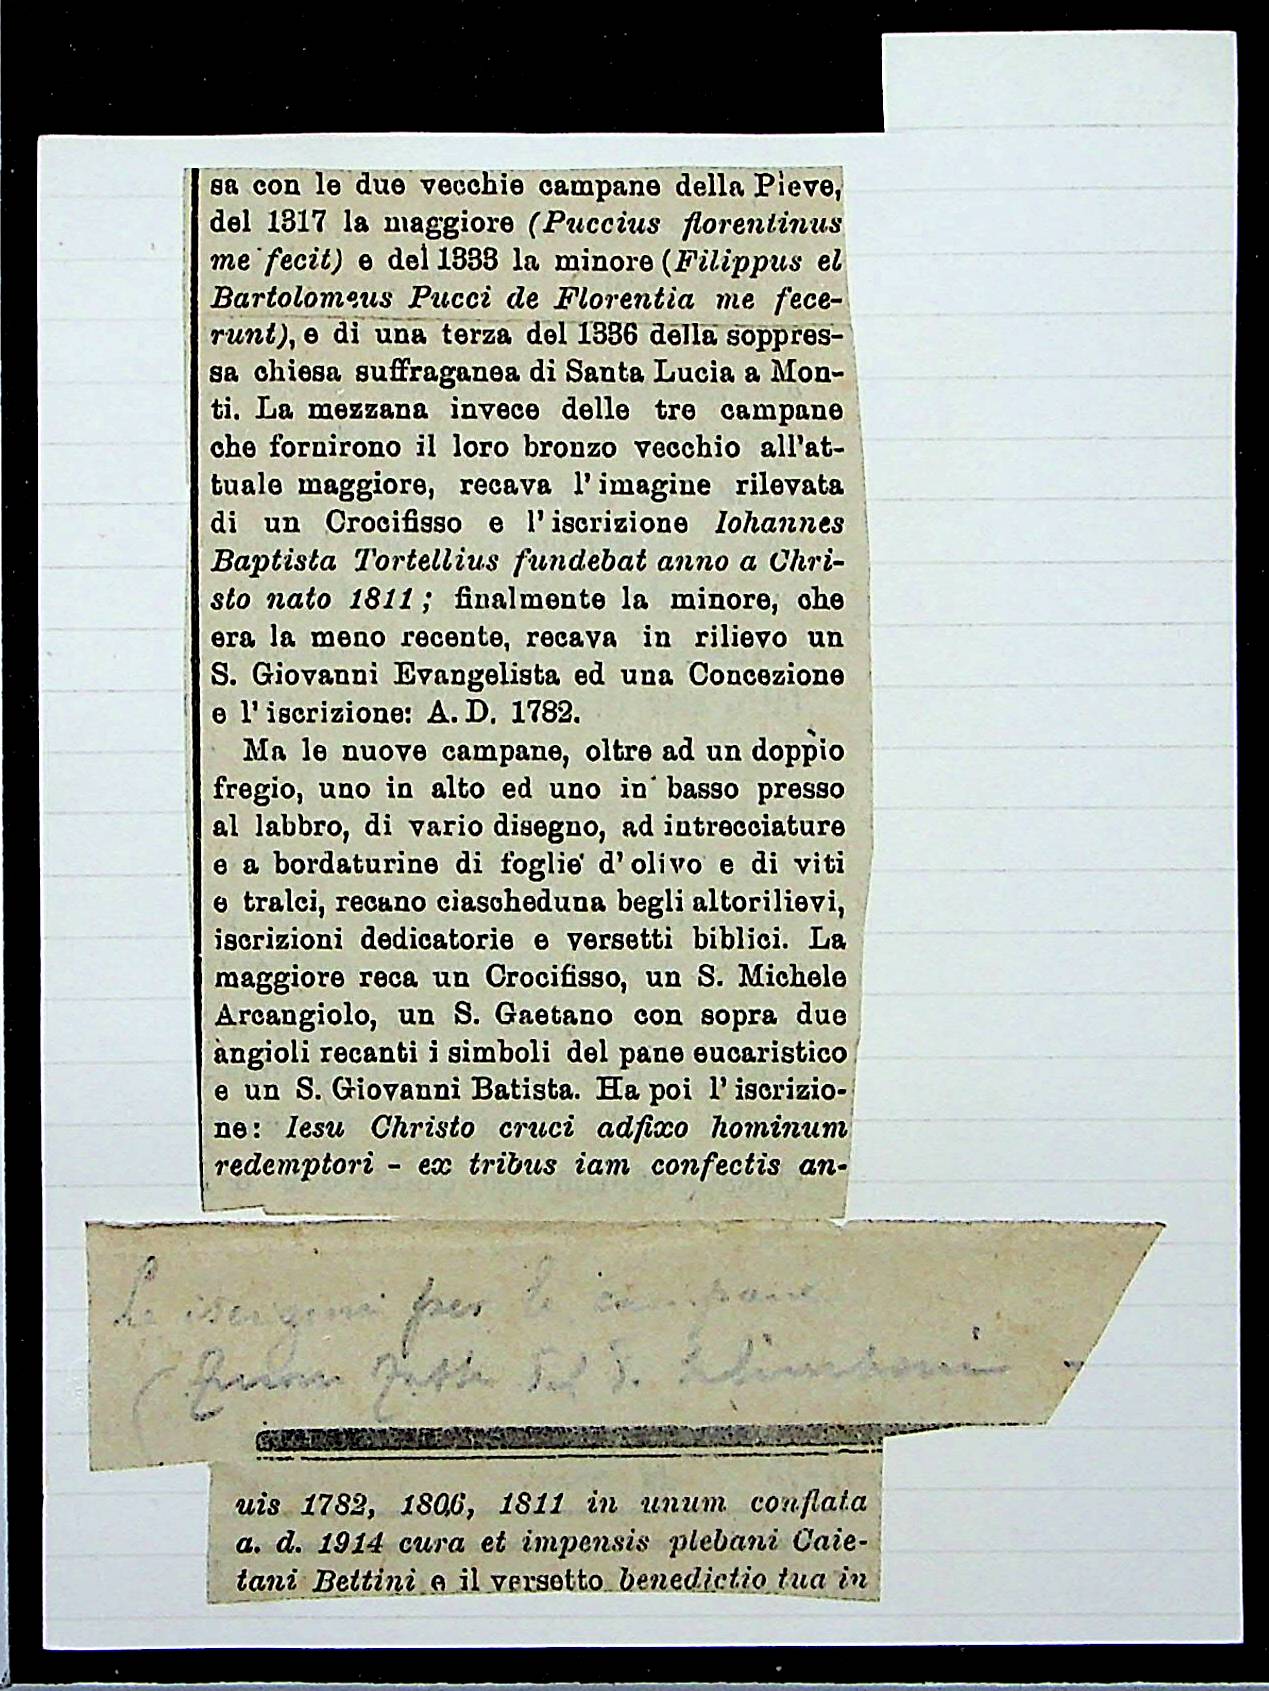 sa con le due vecchie campane della Pieve,
del 1317 la maggiore (Puccius florentinus
me fecit) e del 1333 la minore (Filippus el
Bartolomeus Pucci de Florentia me fece-
runt), e di una terza del 1336 della soppres-
sa chiesa suffraganea di Santa Lucia a Mon-
ti. La mezzana invece delle tre campane
che fornirono il loro bronzo vecchio all'at-
tuale maggiore, recava l'imagine rilevata
di un Crocifisso e l'iscrizione Iohannes
Baptista Tortellius fundebat anno a Chri-
sto nato 1811; finalmente la minore, che
era la meno recente, recava in rilievo un
S. Giovanni Evangelista ed una Concezione
e l'iscrizione: A. D. 1782.
Ma le nuove campane, oltre ad un doppio
fregio, uno in alto ed uno in basso presso
al labbro, di vario disegno, ad intrecciature
e a bordaturine di foglie d'olivo e di viti
e tralci, recano ciascheduna begli altorilievi,
iscrizioni dedicatorie e versetti biblici. La
maggiore reca un Crocifisso, un S. Michele
Arcangiolo, un S. Gaetano con sopra due
angioli recanti i simboli del pane eucaristico
e un S. Giovanni Batista. Ha poi l'iscrizio-
ne: Iesu Christo cruci adfixo hominum
redemptori - ex tribus iam confectis an-
Le iscrizioni per le campane
furon fatte dal
uis 1782, 1806, 1811 in unum conflata
a. d. 1914 cura et impensis plebani Caie-
tani Bettini e il versetto benedictio tua in